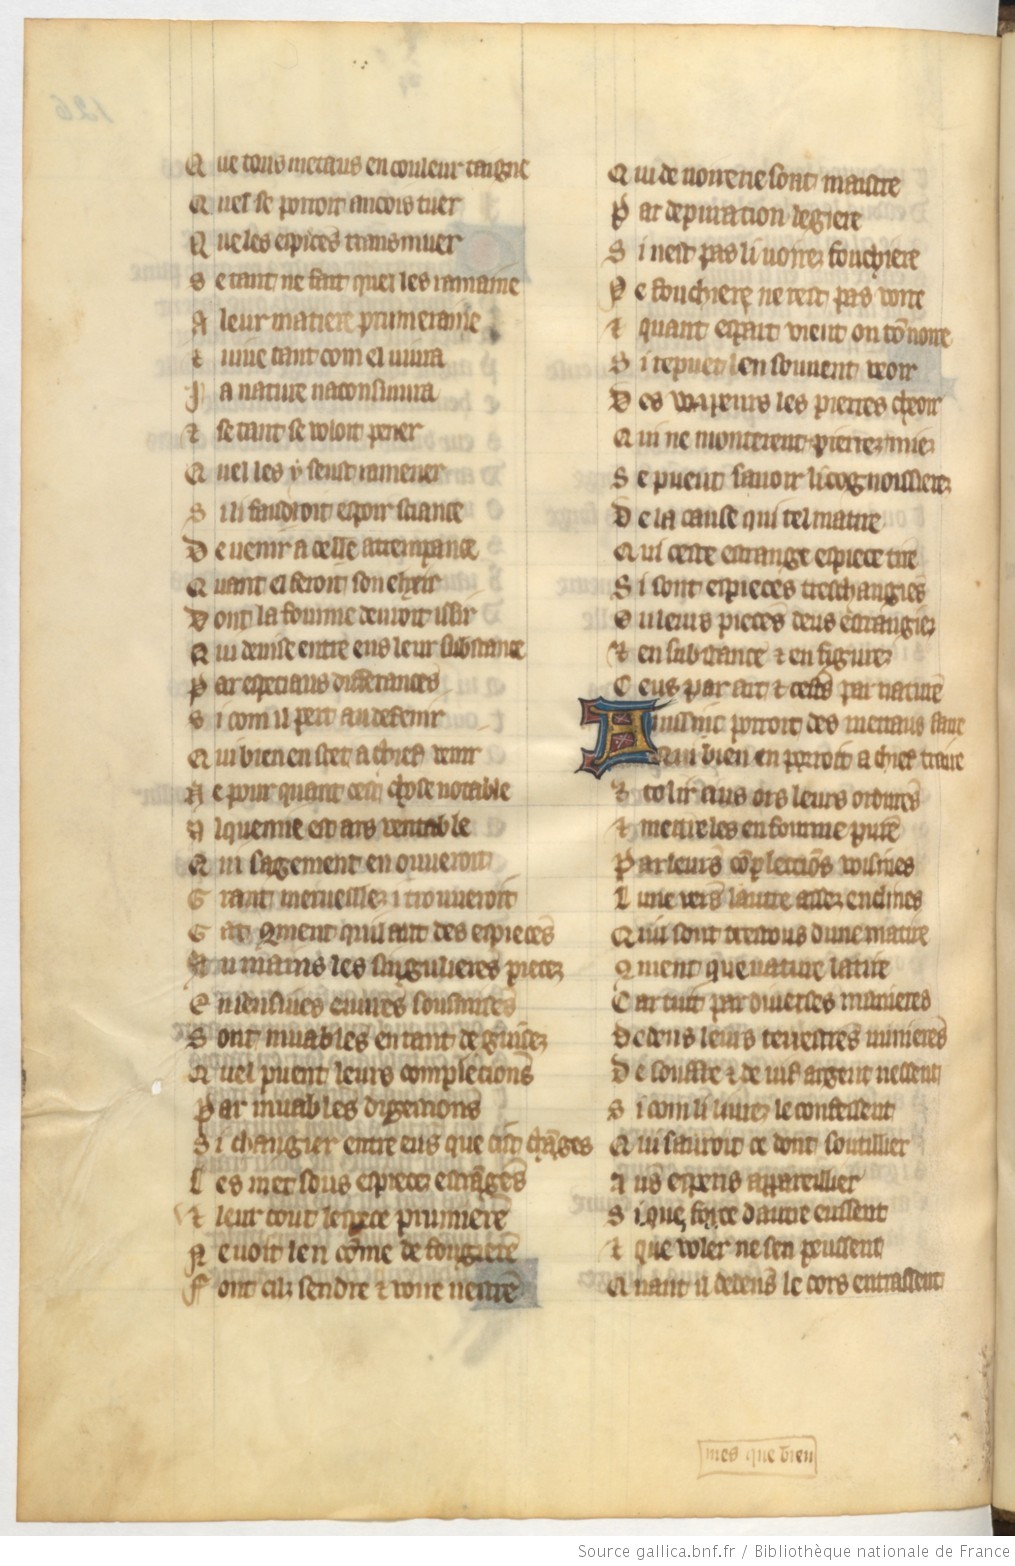 Q ue tous metaus en couleur taigne
Q uel se porroit ancois tuer
Q ue les espices transmuer
S e tant ne fait quel les ramaine
A leur matiere prumeraine
⁊ uive tant com el vivra
J a nature naconsivra
⁊ se tant se voloit pener
Q uel les y seust ramener
S i li faudroit espoir sciance
D e venir a celle attempance
Q uant el feroit son elixir
D ont la fourme devroit issir
Q ui devise entre eus leur substance
P ar especiaus differances
S i com il pert au defenir
Q ui bien en scet a chief venir
N e pour quant cest chose notable
A lquemie est ars veritable
Q ui sagement en ouveroit
G rant merveillez i trouveroit
C ar 9ment quil aut des espieces
A u mains les singulieres pieces
E n sensives euvres sousmises
S ont muables en tant de guisez
Q uel puent leurs complections
P ar muables digestions
S i changier entre eus que cist chāges
L es met sous espiecez estrāges
⁊ leur tout lespece prumiere
N e voit len cōme de fougiere
F ont cil cendre ⁊ voire nestre
Q ui de voirrerie sont maistre
P ar depuration legiere
S i nest pas li voirrez fouchiere
N e fouchiere ne rest pas voirre
⁊ quant espart vient ou tōnoirre
S i repuet len souvent veoir
D es vapeurs les pierres cheoir
Q ui ne monterent pierrez mie
S e puent savoir li cognoissierrez
D e la cause qui tel matire
Q ui ceste estrange espiece tire
S i sont espieces treschangies
O u leurs pieces deus estrangiez
⁊ en substance ⁊ en figurez
C eus par art ⁊ cestes par nature
A uissint porroit des metaus faire
Q ui bien en porroit a chief traire
⁊ tolir aus ors leurs ordures
⁊ metre les en fourme pure
P ar leurs cōplections voisines
L une vers lautre assez enclines
Q ui sont trestous dune matire
9ment que nature la tire
C ar tuit par diverses manieres
D edens leurs terrestres minieres
D e souffre ⁊ de vif argent nessent
S i com li livrez le confessent
Q ui sauroit ce dont soutillier
A us esperis appareillier
S i que force dautre eussent
⁊ que voler ne sen peussent
Q uant il dedens le cors entrassent
mes que bien
Source gallica.bnf.fr / Bibliothèque nationale de France